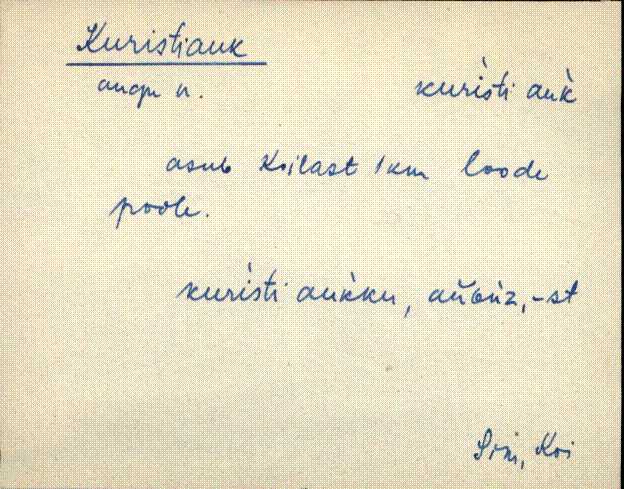 Kuristiauk
augu n. kuri̇̀sti auk̀
asub Koilast 1km loode
poole.
kuri̇̀sti auk̀ku, -st
Koi